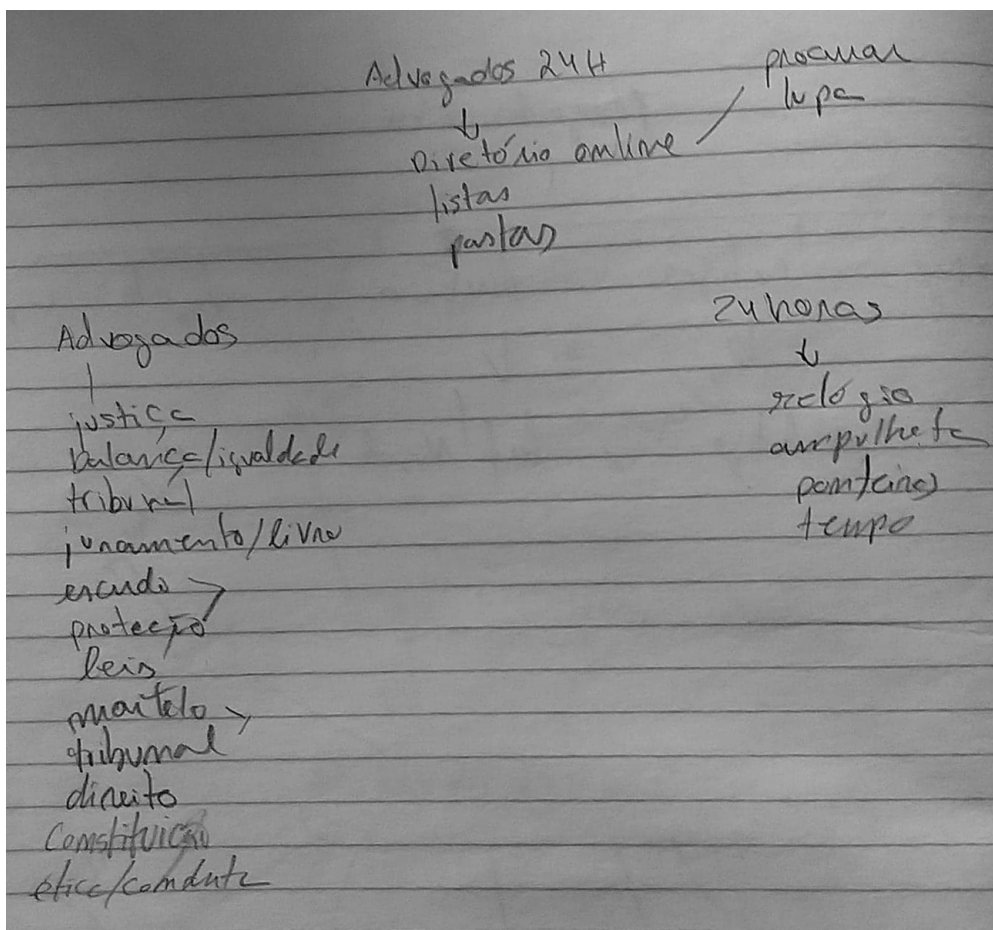 Advogados 24H
procurar
lupa
↓
Diretório online
listas
pastas
Advogados
justiça
balança/igualdade
tribunal
juramento/livro
escudo
proteção
leis
martelo
tribunal
direito
Constituição
ética/conduta
24 horas
↓
relógio
ampulheta
ponteiros
tempo